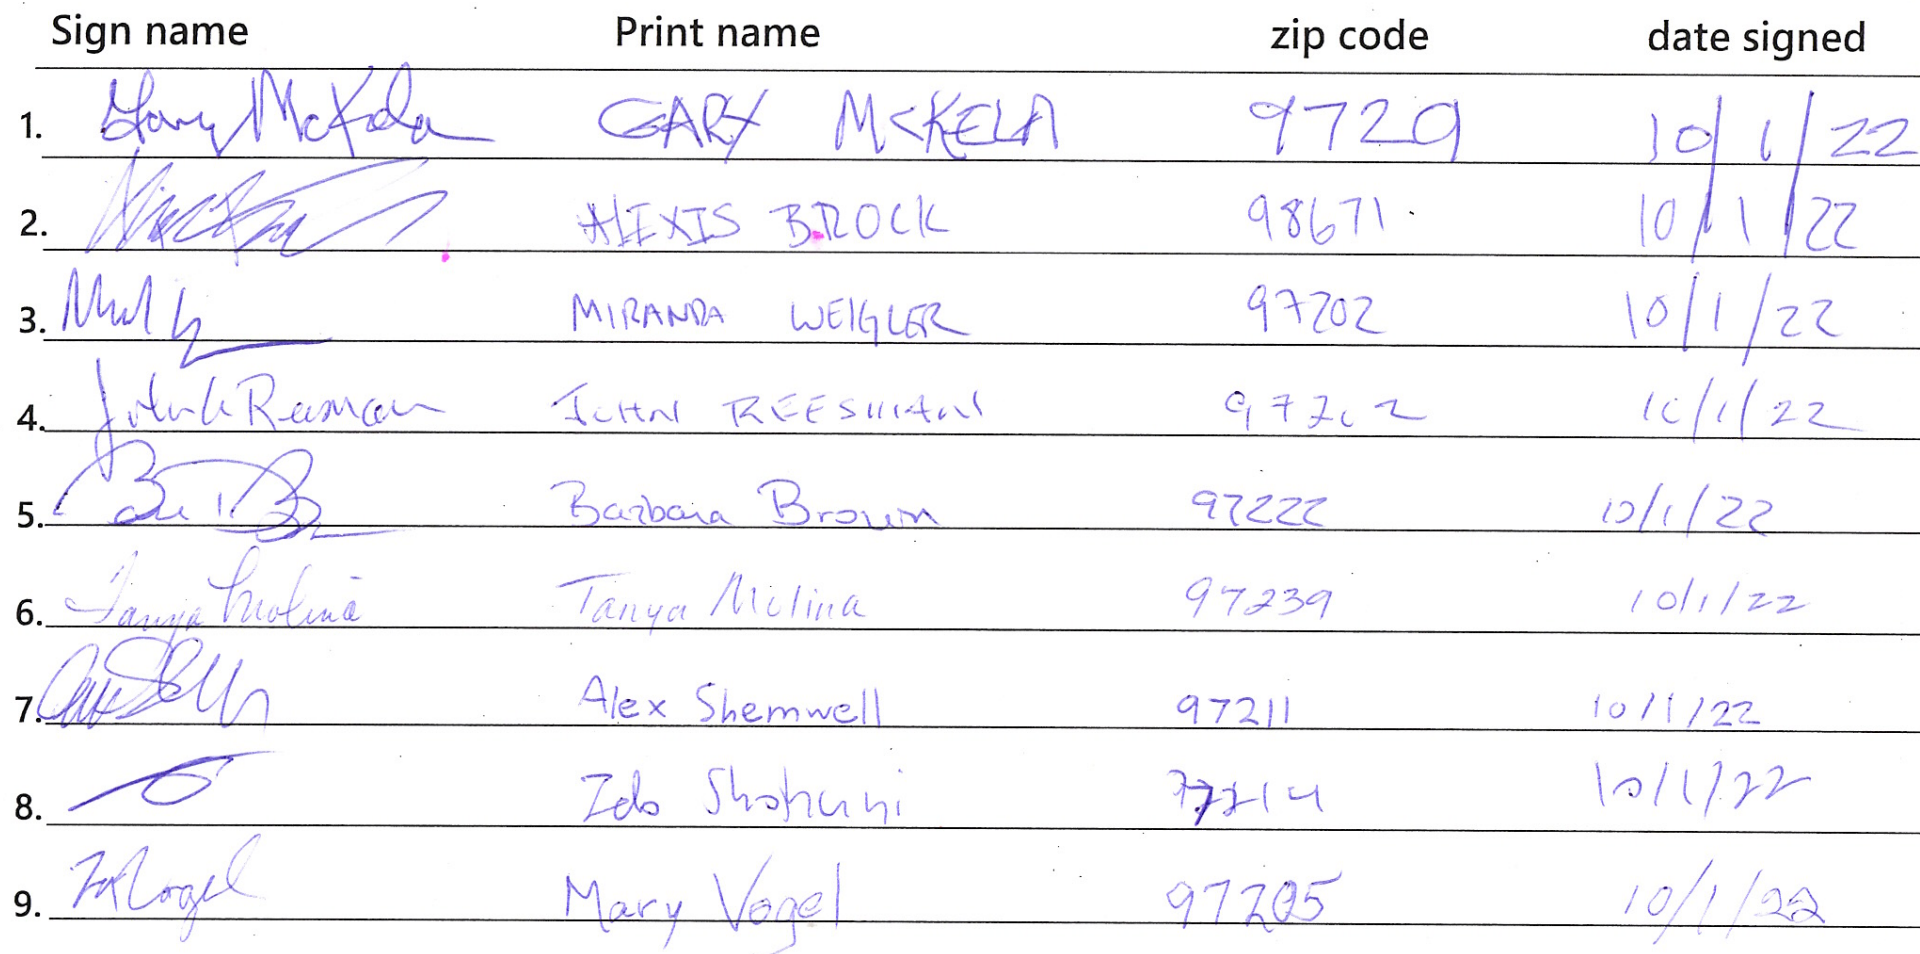 Sign name Print name zip code date signed
1. Gary McKela GARY MCKELA 9720 10/1/22
2. ALEXIS BROCK 98671 10/1/22
3. MIRANDA WEIGLER 97202 10/1/22
4. John Reesman JOHN REESMAN 97202 10/1/22
5. Barbara Brown 97222 10/1/22
6. Tanya Molina Tanya Molina 97239 10/1/22
7. Alex Shemwell 97211 10/1/22
8. 97214 10/1/22
9. M Vogel Mary Vogel 97205 10/1/22